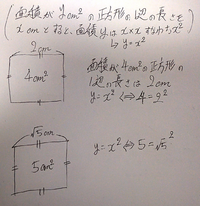 面積が y cm² の正方形の1辺の長さを
x cm とすると、面積 y は x×x すなわち x²
↳ y = x²
2cm
4cm²
面積が 4cm² の正方形の
1辺の長さは 2cm
y = x² ⟺ 4 = 2²
√5 cm
5cm²
y = x² ⟺ 5 = √5²